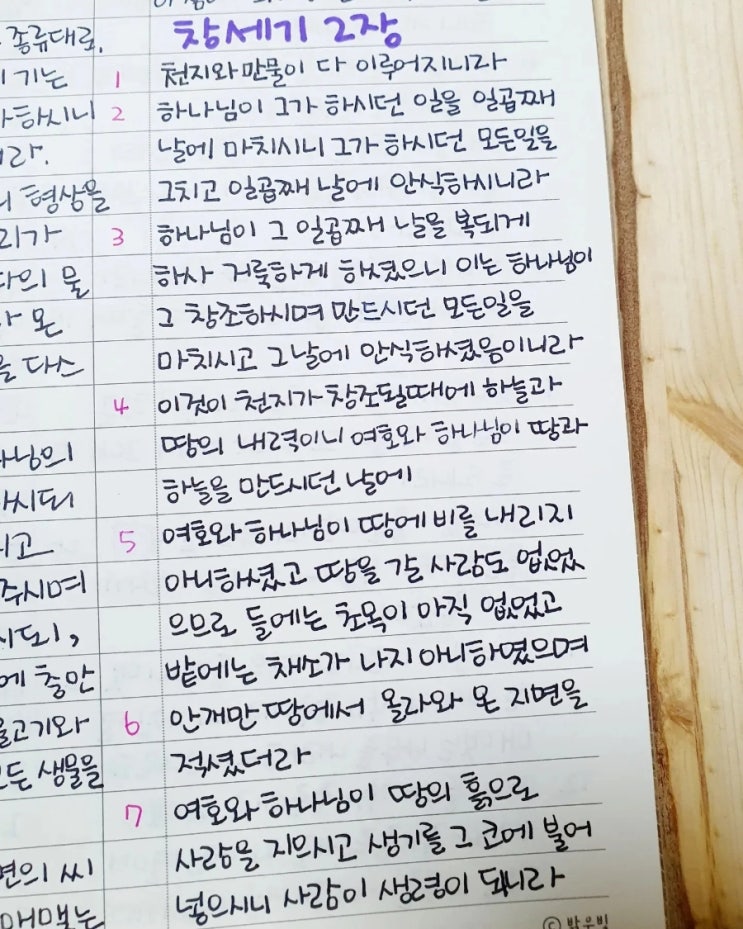 종류대로.
기는
하시니
라.
형상을
리가
다의 물
온
을 다스
나님의
하시되
고
주시며
시되,
에 줄만
물고기와
모든 생물을
면의 씨
열매맺는
창세기 2장
1 천지와 만물이 다 이루어지니라
2 하나님이 그가 하시던 일을 일곱째
날에 마치시니 그가 하시던 모든일을
그치고 일곱째 날에 안식하시니라
3 하나님이 그 일곱째 날을 복되게
하사 거룩하게 하셨으니 이는 하나님이
그 창조하시며 만드시던 모든일을
마치시고 그날에 안식하셨음이니라
4 이것이 천지가 창조될때에 하늘과
땅의 내력이니 여호와 하나님이 땅과
하늘을 만드시던 날에
5 여호와 하나님이 땅에 비를 내리지
아니하셨고 땅을 갈 사람도 없었
으므로 들에는 초목이 아직 없었고
밭에는 채소가 나지 아니하였으며
6 안개만 땅에서 올라와 온 지면을
적셨더라
7 여호와 하나님이 땅의 흙으로
사람을 지으시고 생기를 그 코에 불어
넣으시니 사람이 생령이 되니라